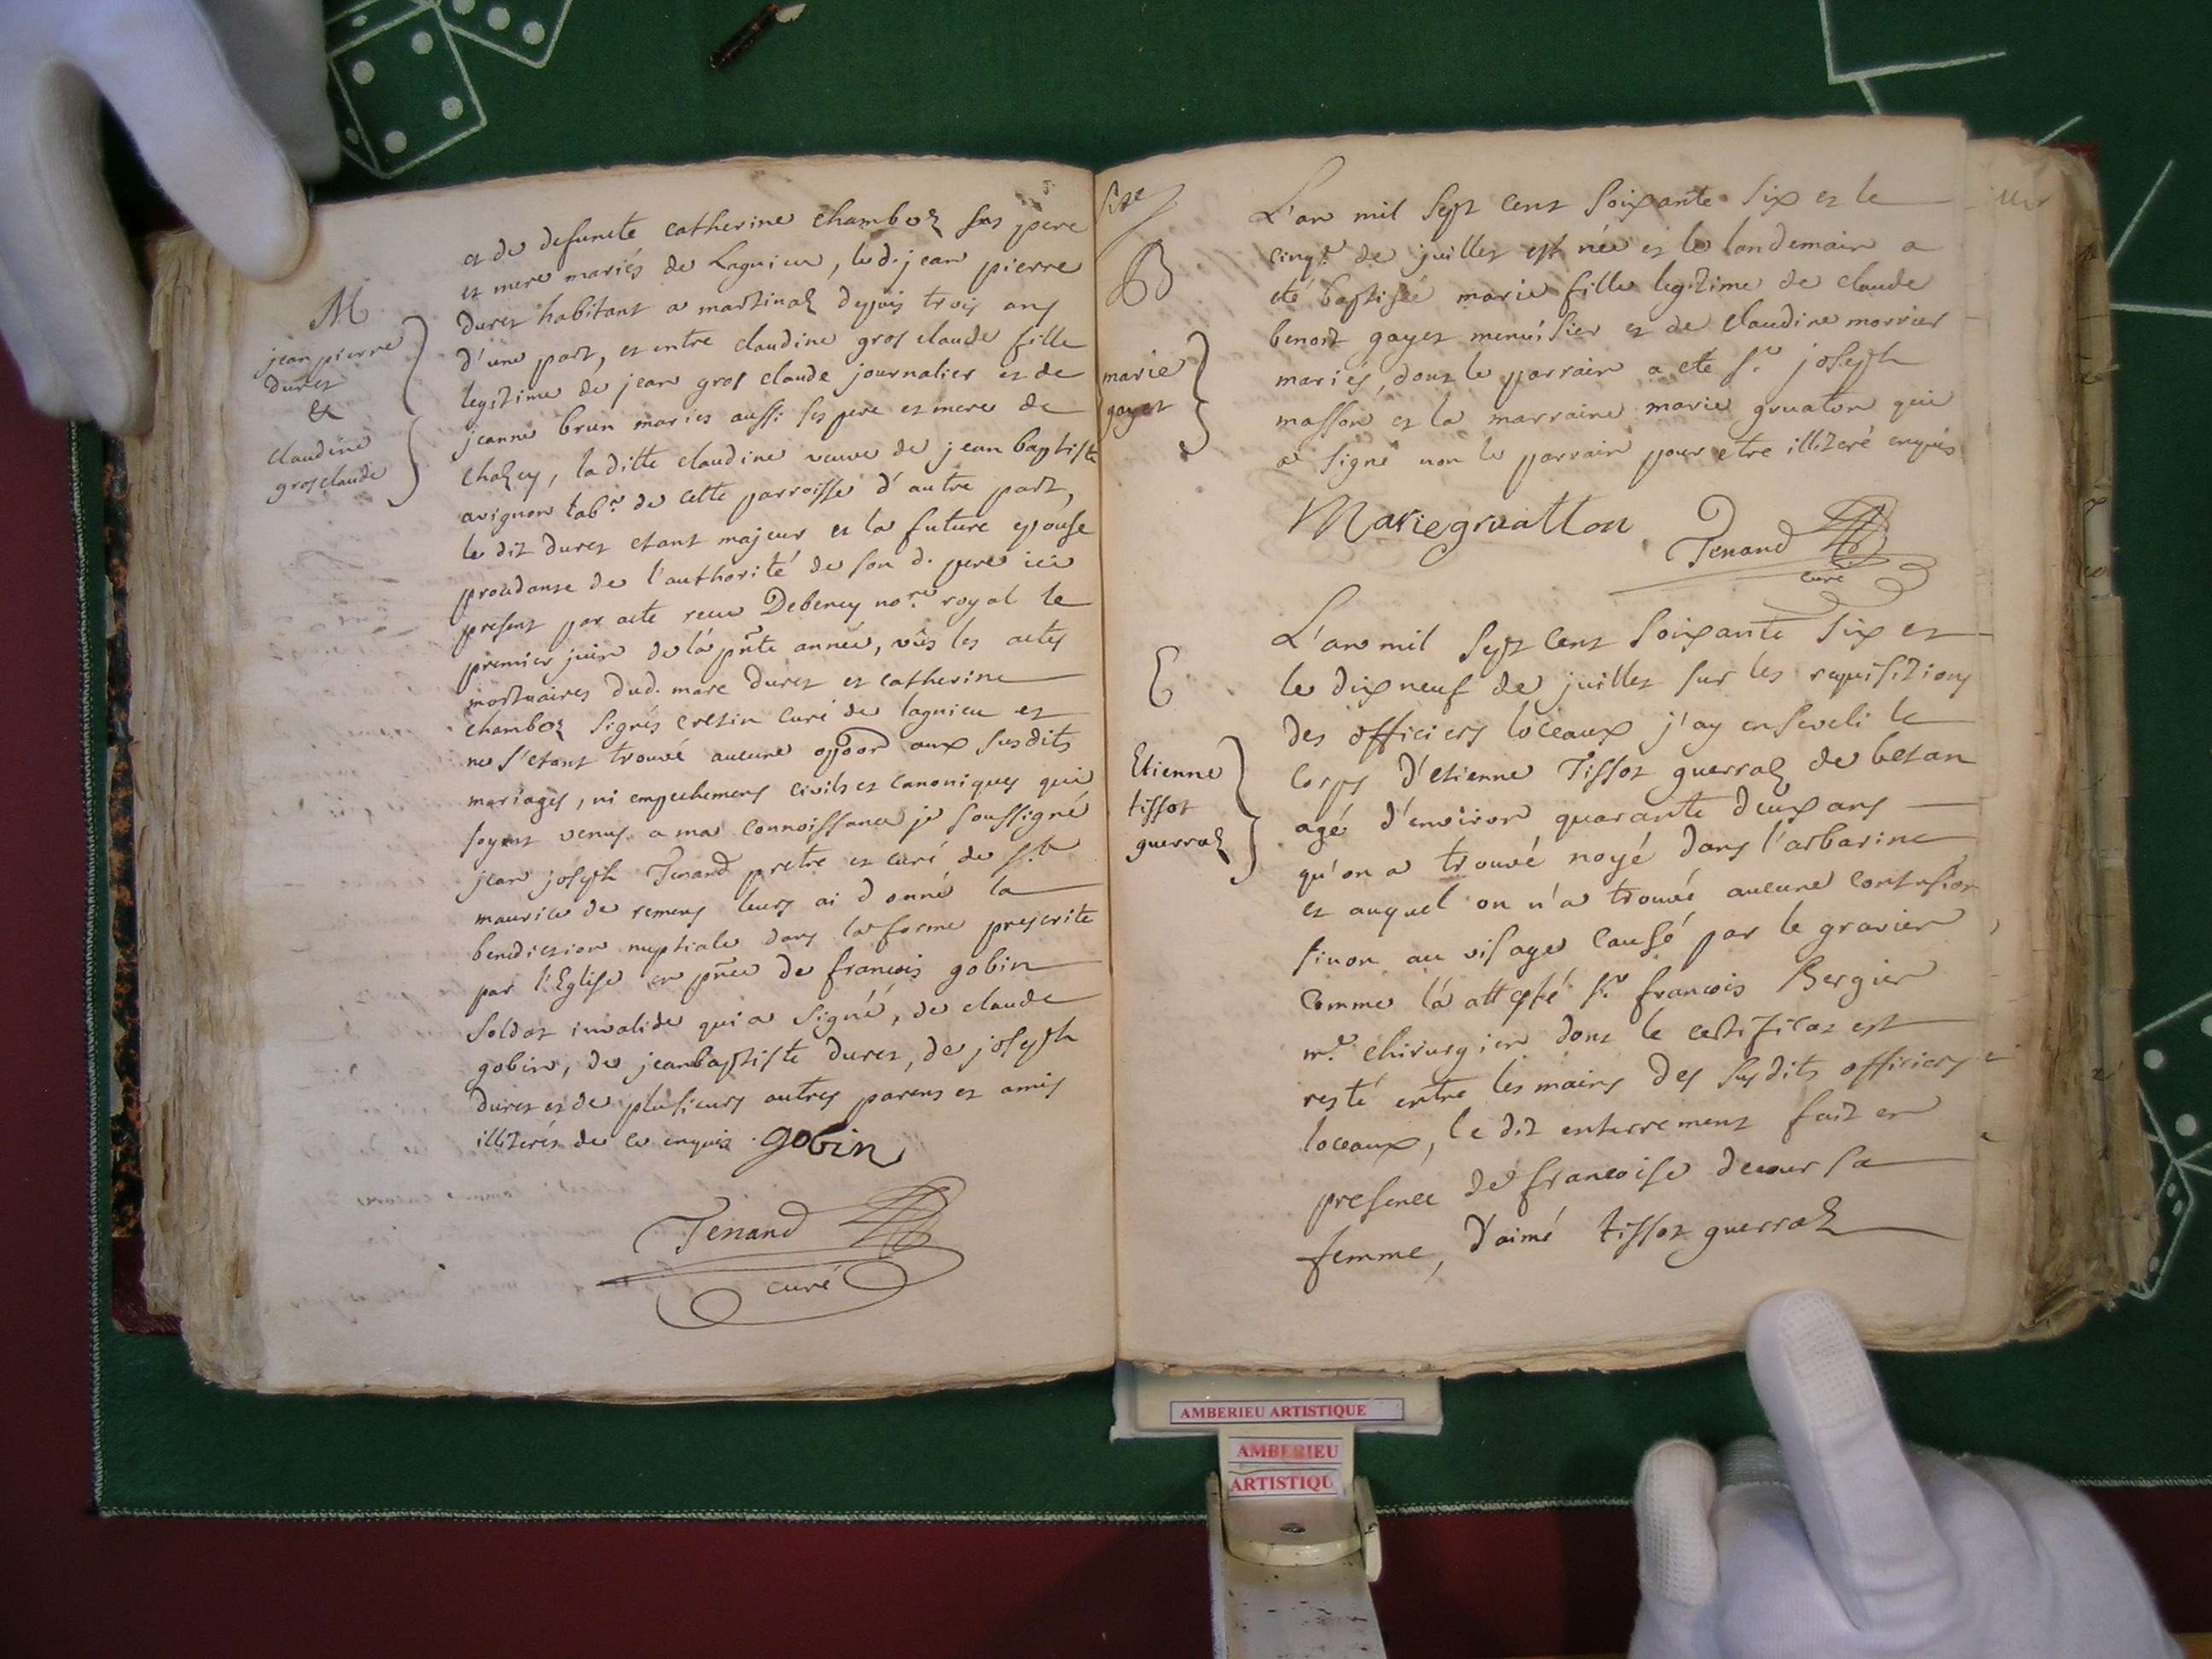 et de defuncte catherine chamboz ses pere
et mere mariés de Lagnieu, led. jean pierre
duret habitant a martinaz depuis trois ans
d'une part, et entre claudine gros claude fille
legitime de jean gros claude journalier et de
jeanne brun mariés aussi ses pere et mere de
chazey, la ditte claudine veuve de jean baptiste
avignon lab.r de cette parroisse d'autre part,
le dit duret etant majeur et la future epouse
procedante de l'authorité de son d. pere ici
present par acte recu Debeney no.re royal le
premier juin de la pnte année, vûs les actes
mortuaires dud. marc duret et catherine
chamboz signés cretin curé de lagnieu et
ne s'etant trouvé aucune oppoon aux susdits
mariages, ni empechemens civils et canoniques qui
soyent venus a ma connoissance je soussigné
jean joseph Tenand pretre et curé de St
maurice de remens leurs ai donné la
benediction nuptiale dans la forme prescrite
par l'Eglise en pnce de francois gobin
soldat invalide qui a signé, de claude
gobin, de jeanbaptiste duret, de joseph
duret et de plusieurs autres parens et amis
illiterés de ce enquis. gobin
Tenand
curé
M
jean pierre
duret
&
claudine
gros claude
B
marie
gayet
L'an mil sept cent soixante six et le
cinq.e de juillet est née et le landemain a
eté baptisée marie fille legitime de claude
benoit gayet menuisier et de claudine morrier
mariés, dont le parrain a eté Sr joseph
masson et la marraine marie gruaton qui
a signé non le parrain pour etre illiteré enquis
Marie gruatton
Tenand
curé
E
Etienne
tissot
guerraz
L'an mil sept cent soixante six et
le dix neuf de juillet sur les requisitions
des officiers loceaux j'ay enseveli le
corps d'etienne Tissot guerraz de betan
agé d'environ quarante deux ans
qu'on a trouvé noyé dans l'arbarine
et auquel on n'a trouvé aucune contusion
sinon au visage causé par le gravier
comme l'a attesté Sr francois Bergier
m.e chirurgien dont le certificat est
resté entre les mains des susdits officiers
loceaux, le dit enterrement fait en
presence de francoise decour sa
femme, d'aimé tissot guerraz
AMBERIEU ARTISTIQUE
AMBERIEU
ARTISTIQU